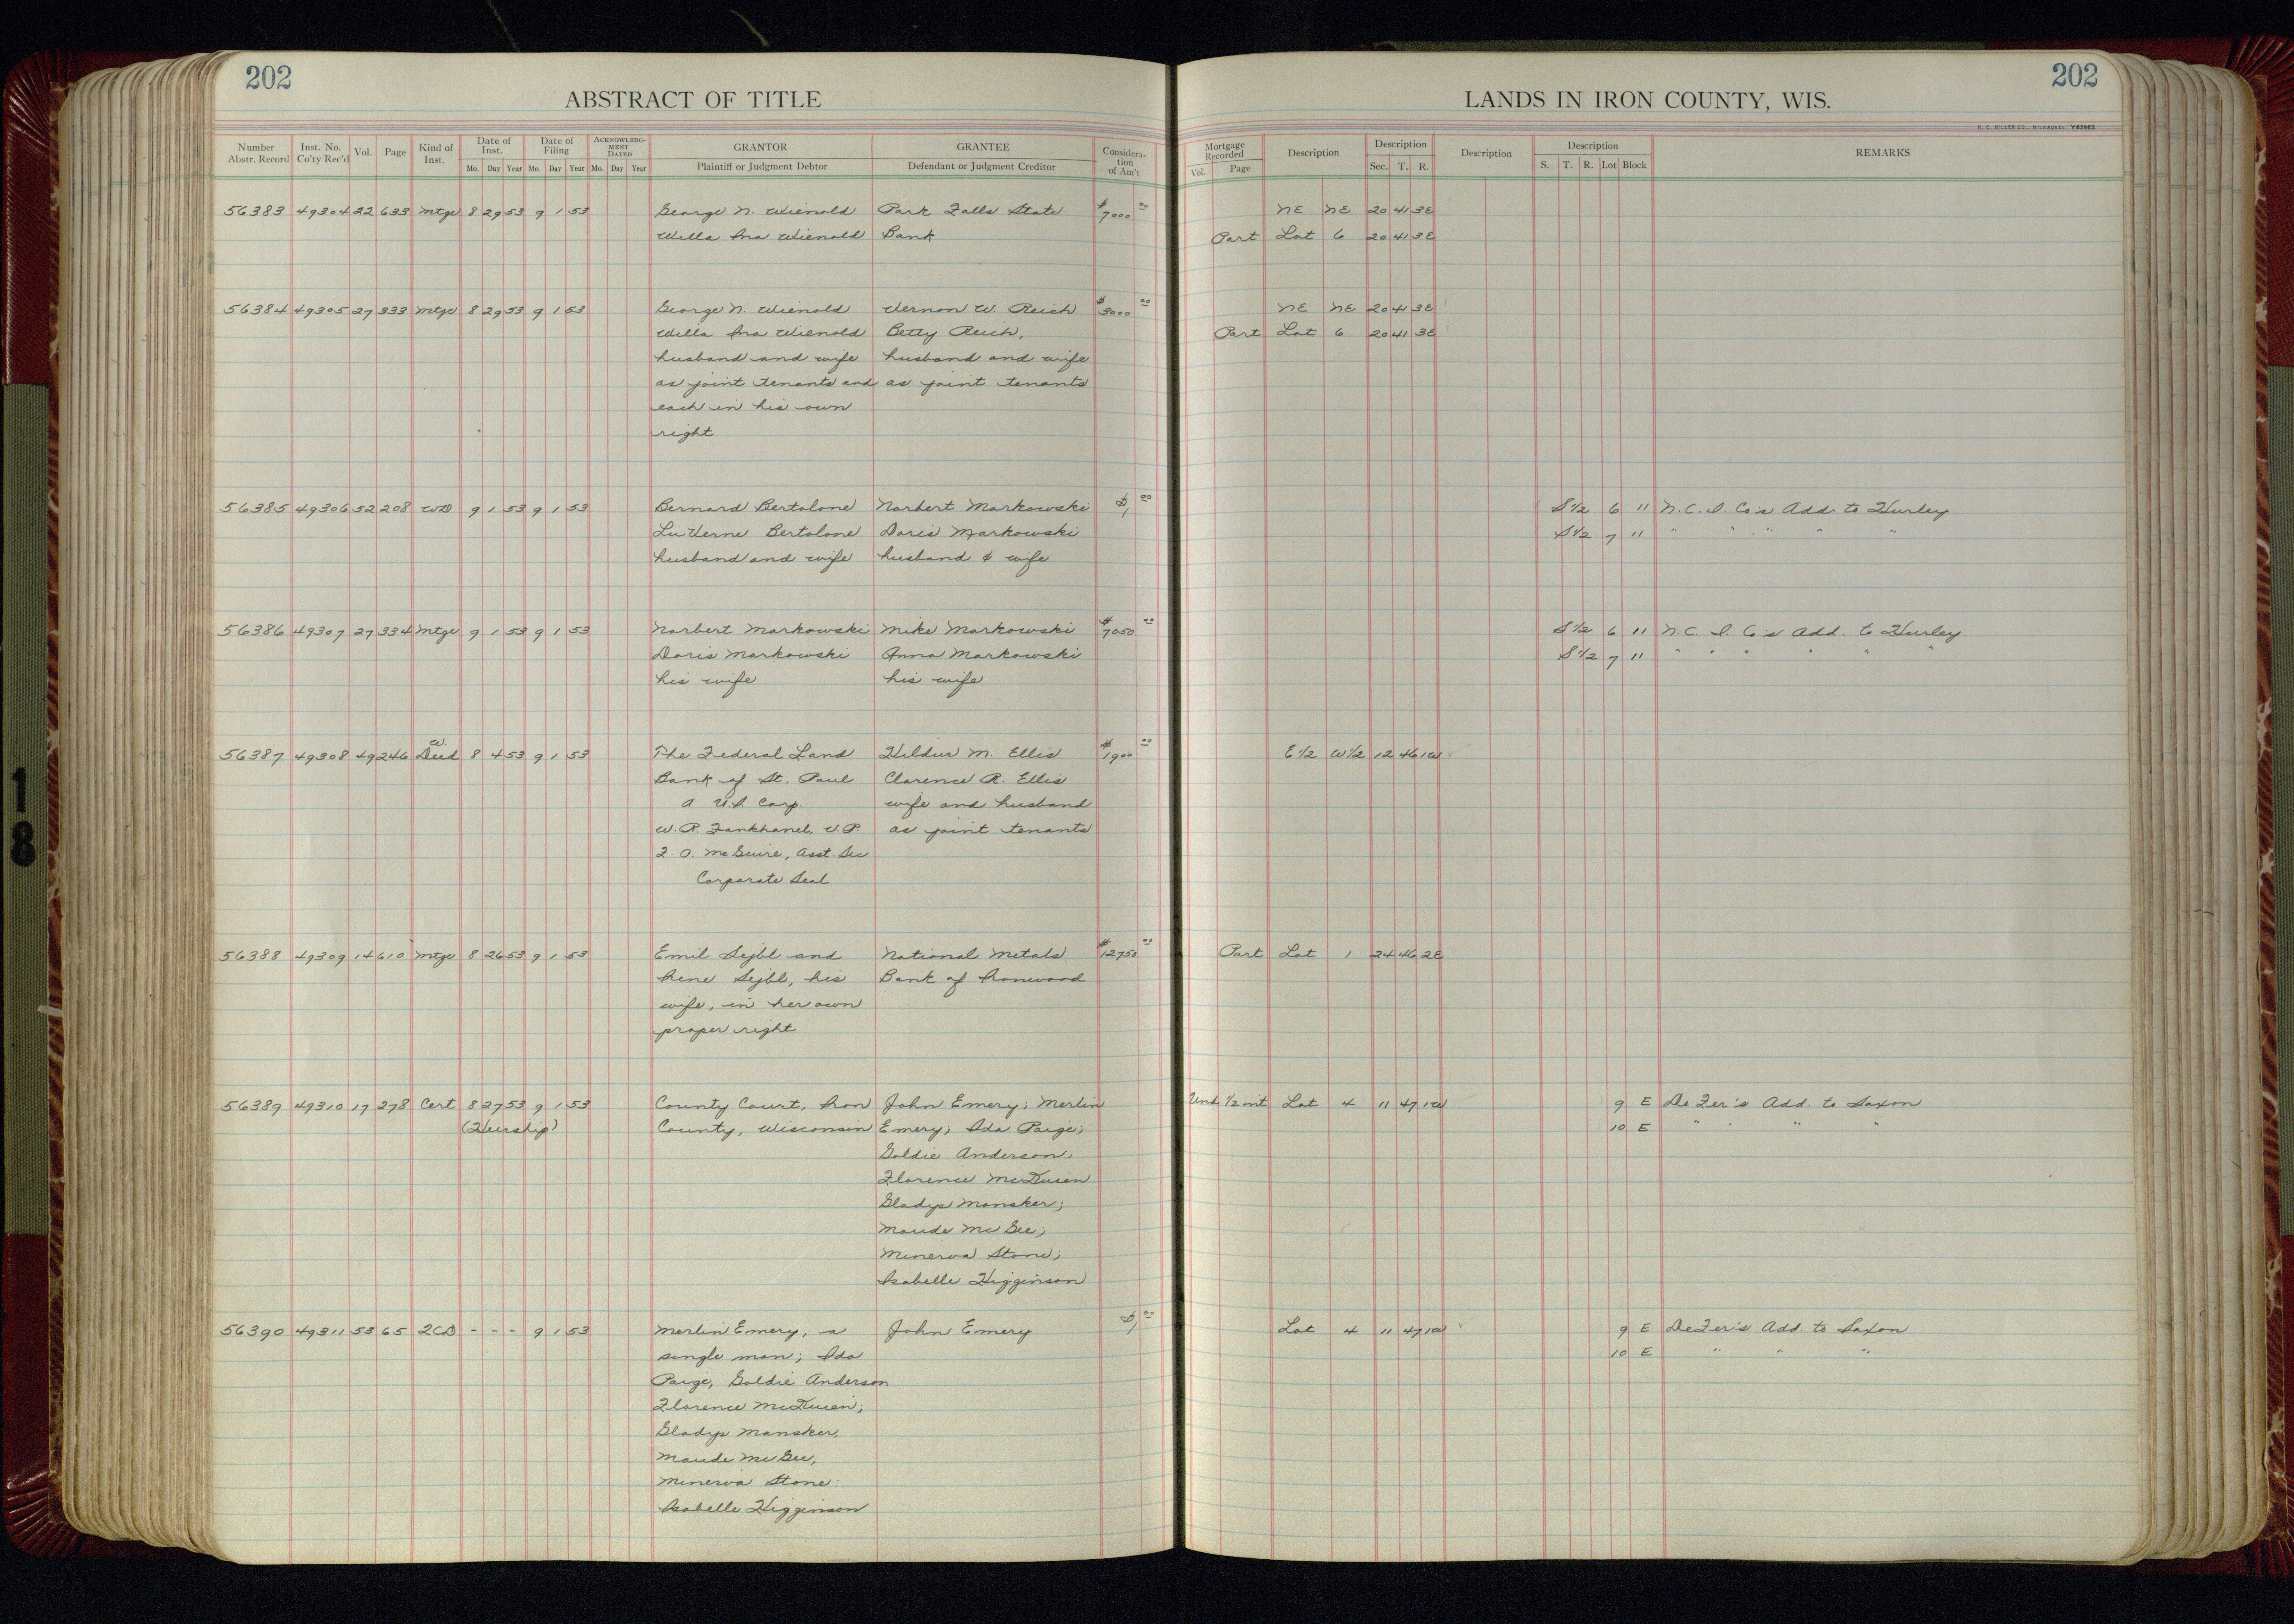 202
ABSTRACT OF TITLE
Number Abstr. Record Inst. No. Co'ty Rec'd Vol. Page Kind of Inst. Date of Inst. Mo. Day Year Date of Filing Mo. Day Year ACKNOWLEDGMENT DATED Mo. Day Year GRANTOR Plaintiff or Judgment Debtor GRANTEE Defendant or Judgment Creditor Consideration of Am't
56383 49304 22 633 Mtge 8 29 53 9 1 53 George N. Wienold Park Falls State $7000 00
Willa Ina Wienold Bank
56384 49305 27 333 Mtge 8 29 53 9 1 53 George N. Wienold Vernon W. Reich $3000 00
Willa Ina Wienold Betty Reich,
husband and wife husband and wife
as joint tenants and as joint tenants
each in his own
right
56385 49306 52 208 WD 9 1 53 9 1 53 Bernard Bertolone Norbert Markowski $1 00
LuVerne Bertolone Doris Markowski
husband and wife husband & wife
56386 49307 27 334 Mtge 9 1 53 9 1 53 Norbert Markowski Mike Markowski $7050 00
Doris Markowski Anna Markowski
his wife his wife
56387 49308 49 246 W. Deed 8 4 53 9 1 53 The Federal Land Hildur M. Ellis $1900 00
Bank of St. Paul Clarence R. Ellis
A U.S. Corp. wife and husband
W. R. Fankhanel, V.P. as joint tenants
F. O. McGuire, Asst. Sec
Corporate Seal
56388 49309 14 610 Mtge 8 26 53 9 1 53 Emil Sejbl and National Metals $12750 00
Irene Sejbl, his Bank of Ironwood
wife, in her own
proper right
56389 49310 17 278 Cert 8 27 53 9 1 53 County Court, Iron John Emery; Merlin
(Heirship) County, Wisconsin Emery; Ida Paige;
Goldie Anderson;
Florence
Gladys Mansker;
Maude McGee;
Minerva Stone;
Isabelle Higginson
56390 49311 53 65 2CD - - - 9 1 53 Merlin Emery, a John Emery $1 00
single man; Ida
Paige, Goldie Anderson
Florence
Gladys Mansker,
Maude McGee,
Minerva Stone:
Isabelle Higginson
202
LANDS IN IRON COUNTY, WIS.
H. C. MILLER CO., MILWAUKEE Y62963
Mortgage Recorded Vol. Page Description Description Sec. T. R. Description Description S. T. R. Lot Block REMARKS
NE NE 20 41 3E
Part Lot 6 20 41 3E
NE NE 20 41 3E
Part Lot 6 20 41 3E
S1/2 6 11 N.C.I. Co's Add. to Hurley
S1/2 7 11 " " " " "
S1/2 6 11 N.C.I. Co's Add. to Hurley
S1/2 7 11 " " " " " "
E1/2 W1/2 12 46 1W
Part Lot 1 24 46 2E
Und. 1/2 int Lot 4 11 47 1W 9 E DeFer's Add. to Saxon
10 E " " " "
Lot 4 11 47 1W 9 E DeFer's Add. to Saxon
10 E " " "
18